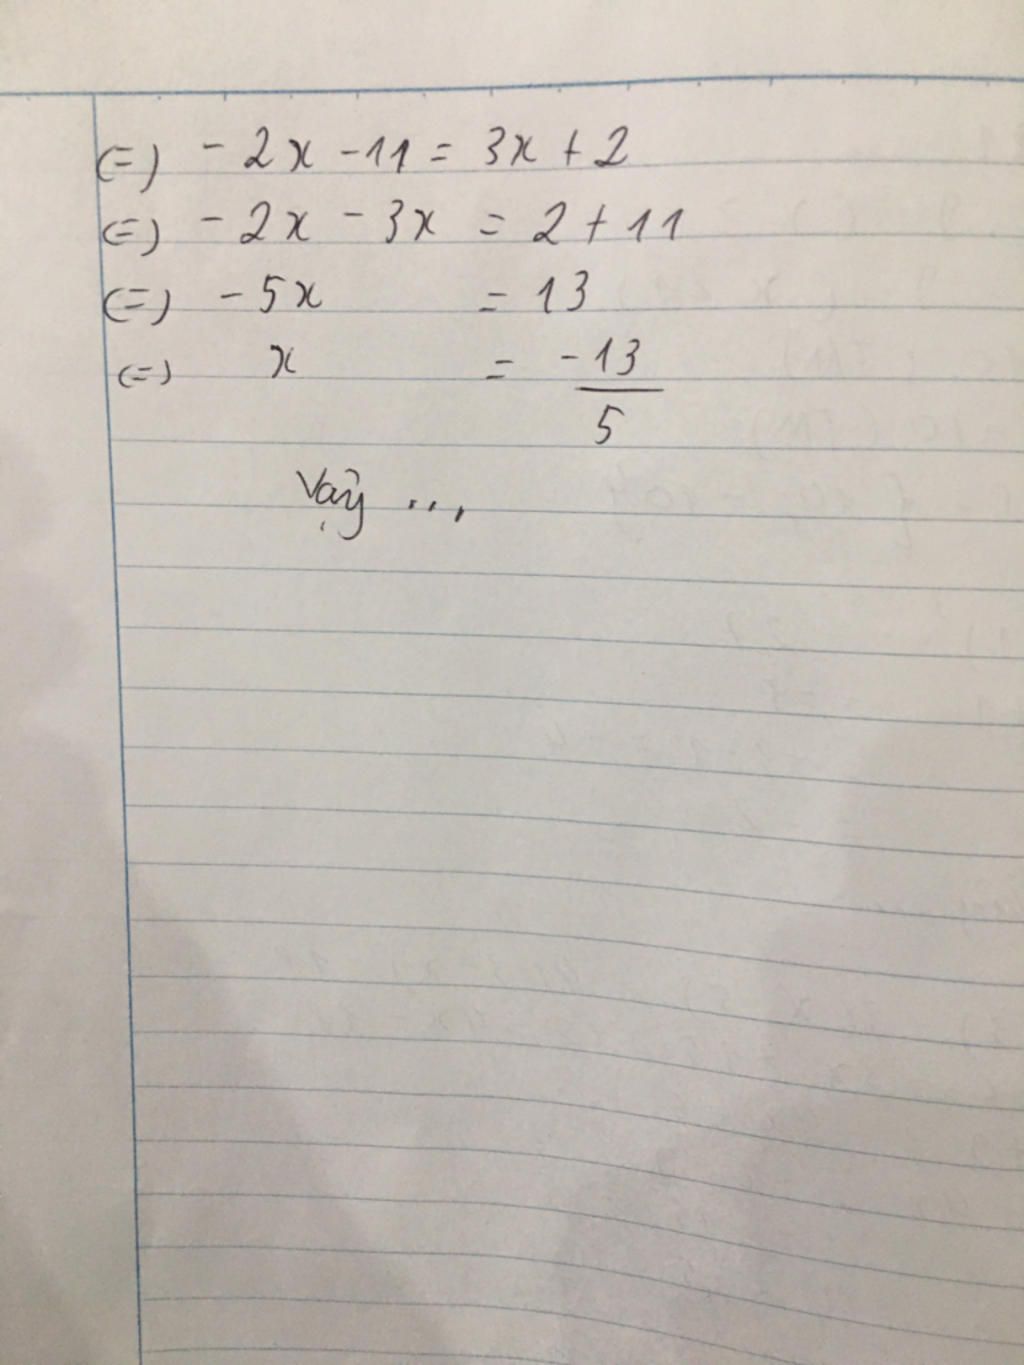 (=) - 2x - 11 = 3x + 2
(=) - 2x - 3x = 2 + 11
(=) - 5x = 13
(=) x = -13
5
Vậy ...